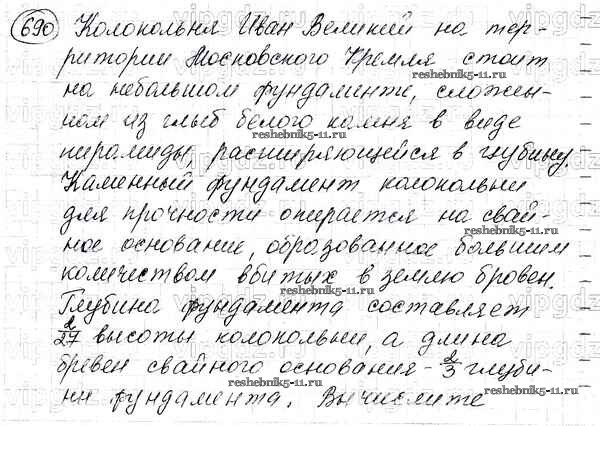 690 Колокольня Иван Великий на тер-
ритории Московского Кремля стоит
на небольшом фундаменте, сложен-
ном из глыб белого камня в виде
пирамиды, расширяющейся в глубину.
Каменный фундамент колокольни
для прочности опирается на свай-
ное основание, образованное большим
количеством вбитых в землю бревен.
Глубина фундамента составляет
2/27 высоты колокольни, а длина
бревен свайного основания - 2/3 глуби-
ны фундамента. Вычислите
reshebnik5-11.ru
reshebnik5-11.ru
reshebnik5-11.ru
reshebnik5-11.ru
reshebnik5-11.ru
reshebnik5-11.ru